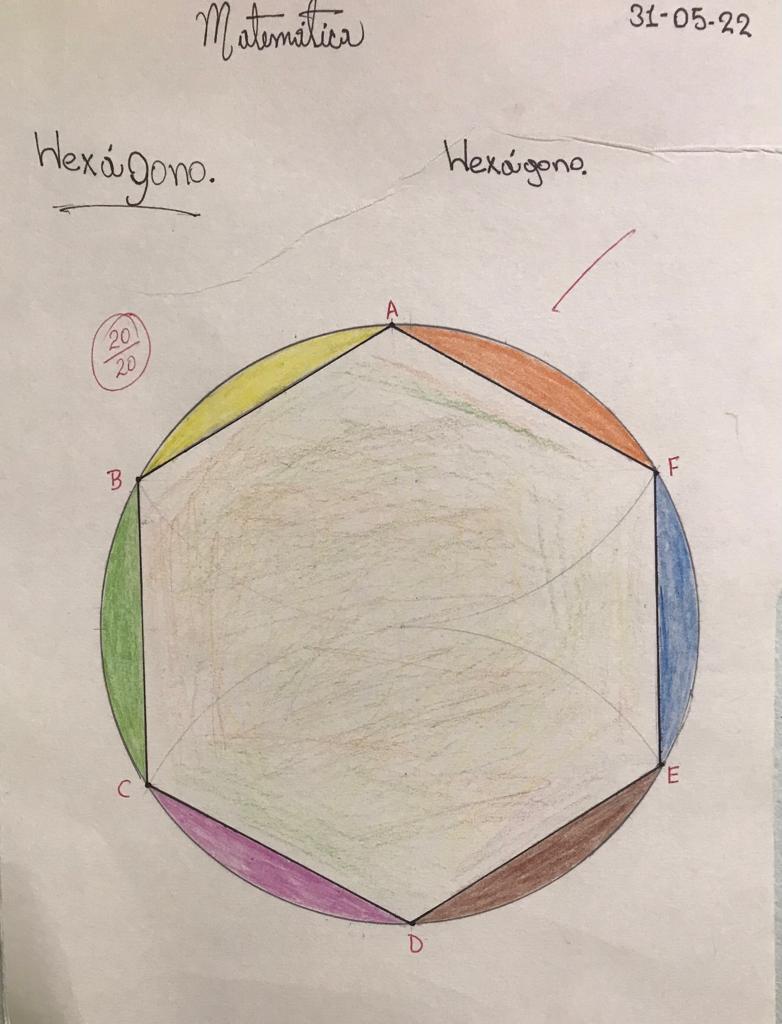 Matemática
31-05-22
Hexágono.
Hexágono.
A
20/20
B
F
C
E
D